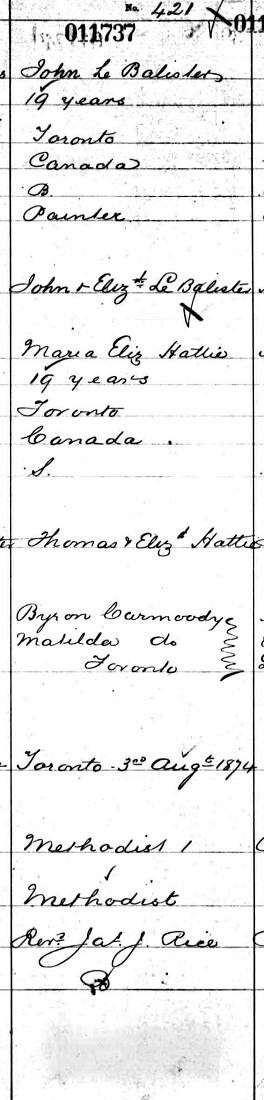 No. 421
011737
John Le Balister
19 years
Toronto
Canada
B
Painter
John & Eliz.th Le Balister
Maria Eliz Hattie
19 years
Toronto
Canada.
S.
Thomas & Eliz.h Hattie
Byron Carmoody
Matilda do
Toronto
Toronto - 3rd Augt 1874
Methodist 1
Methodist
Revd Jas. J. Rice